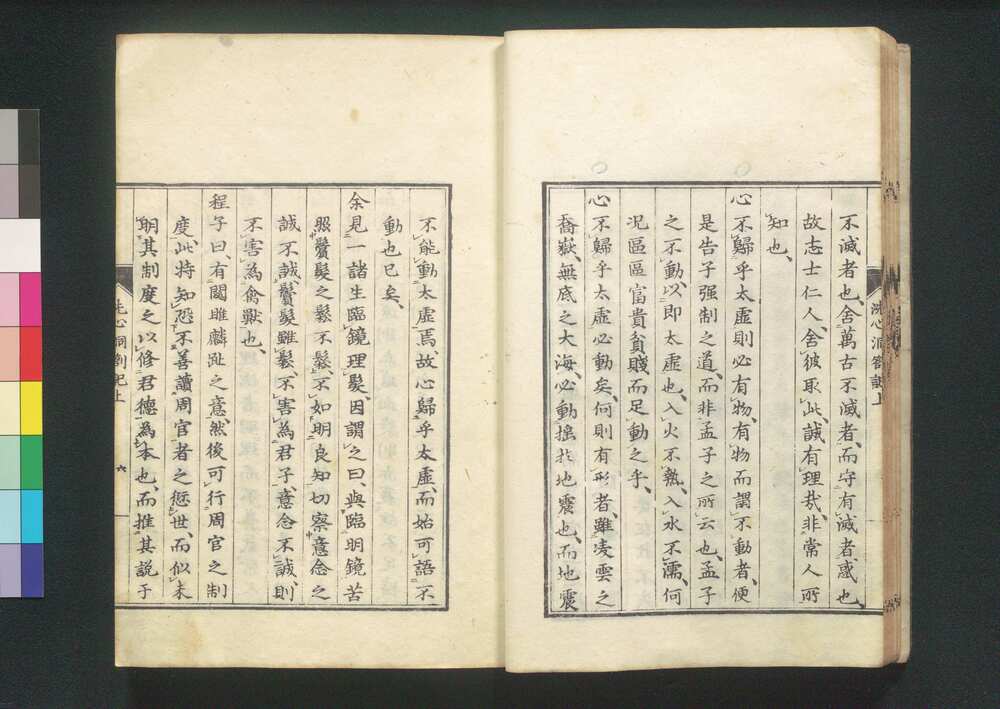 不滅者也、舍萬古不滅者、而守有滅者、惑也、
故志士仁人、舍彼取此、誠有理哉、非常人所
知也、
心不歸乎太虛則必有物、有物而謂不動者、便
是告子强制之道、而非孟子之所云也、孟子
之不動、以即太虛也、入火不熱、入水不濡、何
況區區富貴貧賤而足動之乎、
心不歸乎太虛必動矣、何則有形者、雖凌雲之
喬嶽、無底之大海、必動搖於地震也、而地震
洗心洞劄記上
不能動太虛焉、故心歸乎太虛、而始可語不
動也已矣、
余見一諸生臨鏡理髮、因謂之曰、與臨明鏡苦
照鬢髮之鬆不鬆、不如明良知切察意念之
誠不誠、鬢髮雖鬆、不害為君子、意念不誠、則
不害為禽獸也、
程子曰、有關雎麟趾之意、然後可行周官之制
度、此特知恐不善讀周官者之愆世、而似未
明其制度之以修君德為本也、而推其說于
洗心洞劄記上
六